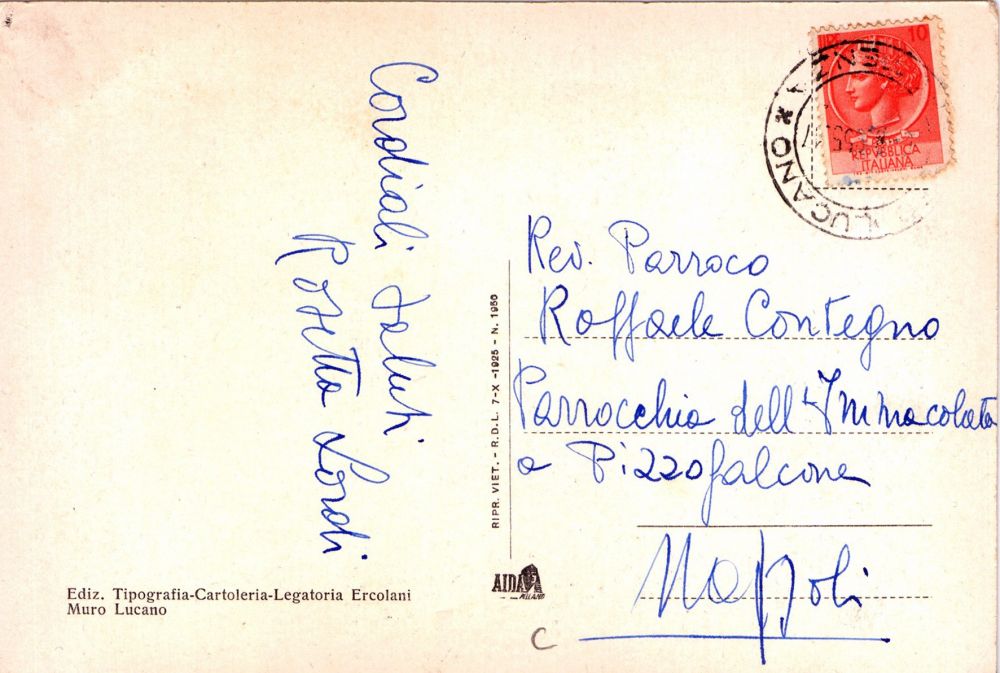 Cordiali saluti
Rosetta Lordi
10
REPVBBLICA
ITALIANA
LUCANO *
Rev. Parroco
Raffaele Contegno
Parrocchia dell'Immacolata
a Pizzofalcone
Napoli
RIPR. VIET. - R.D.L. 7-X-1925 - N. 1950
AIDA
MILANO
Ediz. Tipografia-Cartoleria-Legatoria Ercolani
Muro Lucano
C